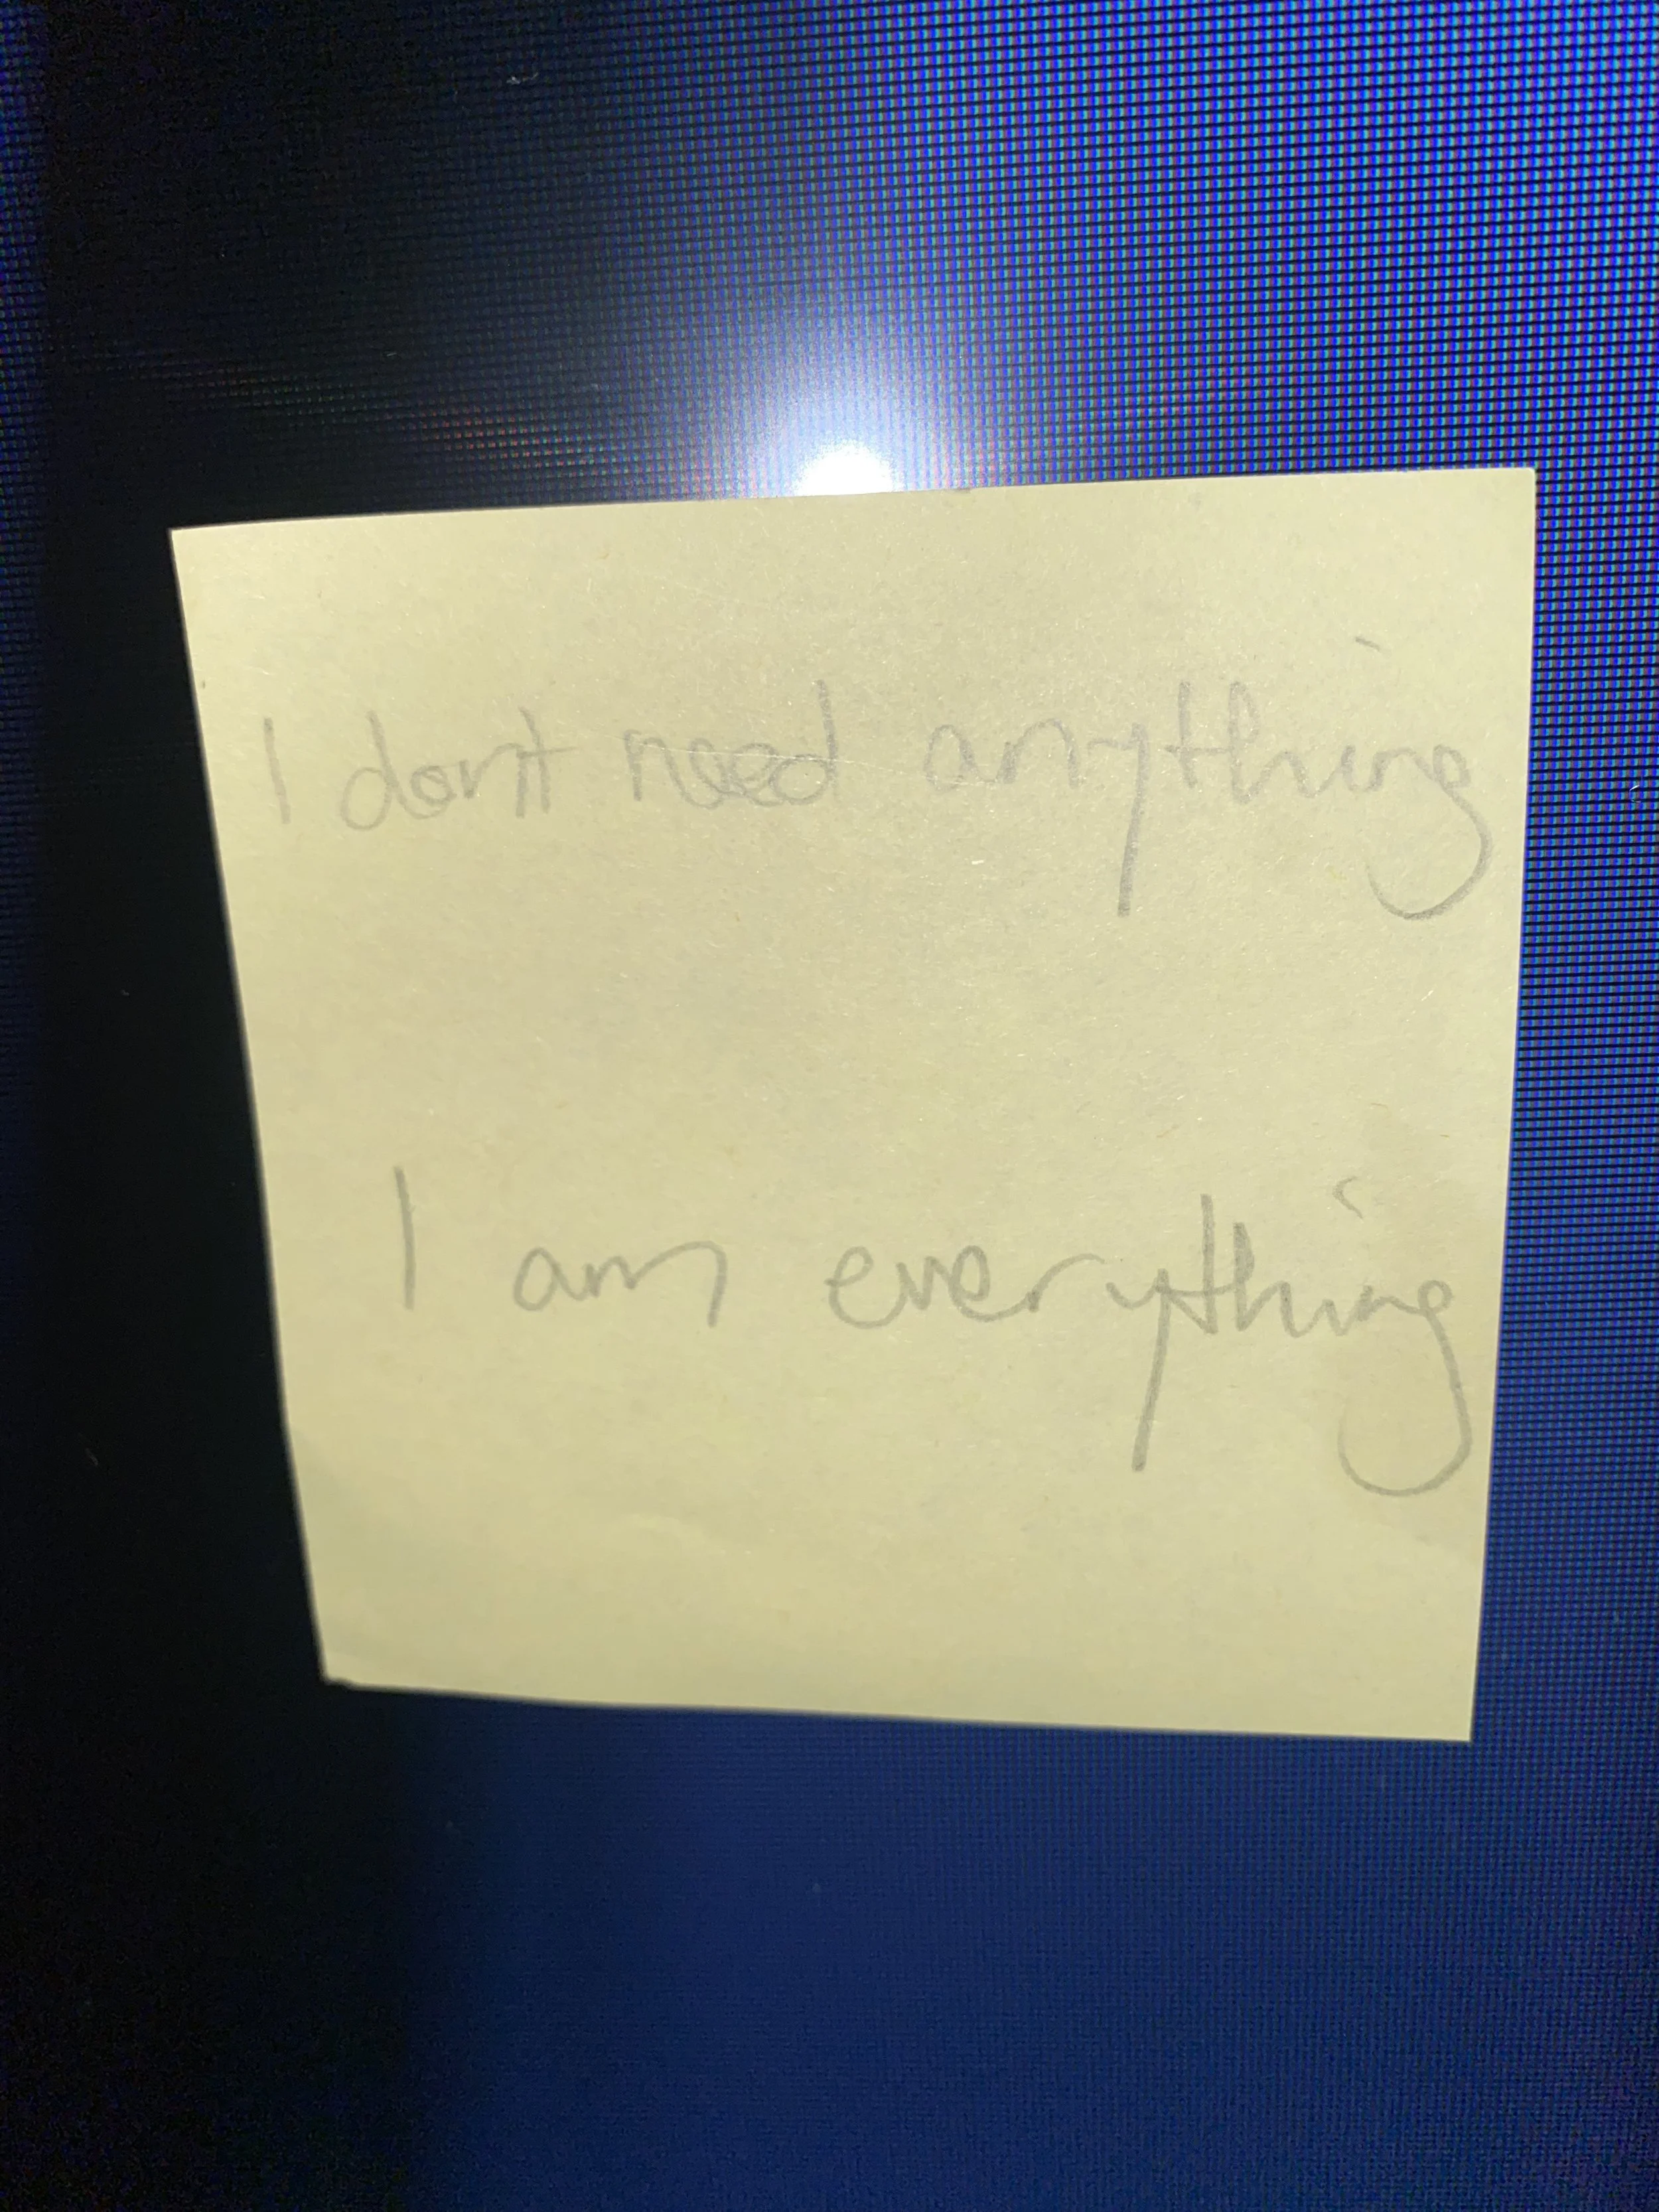 I don't need anything
I am everything